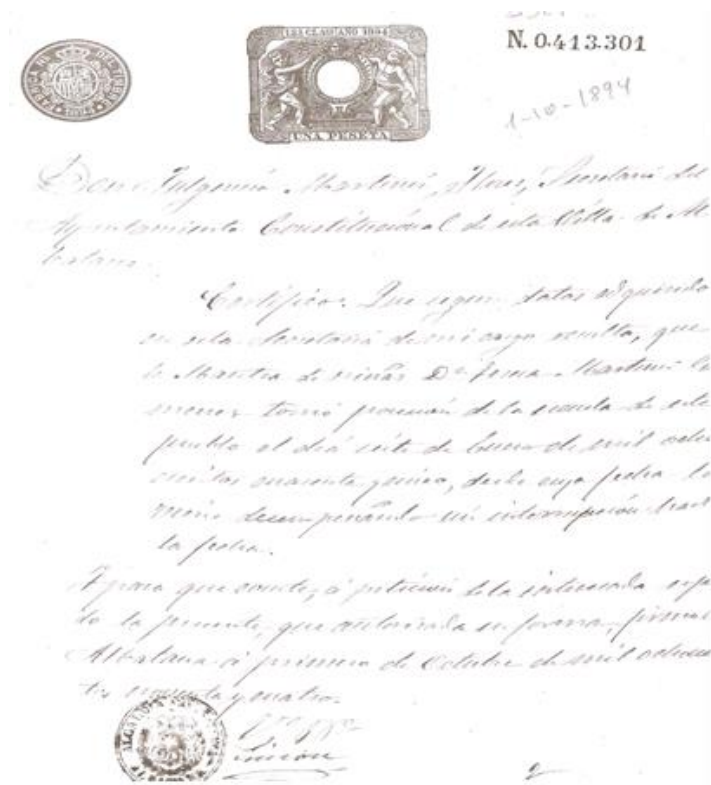 11ª CLASE AÑO 1894
N. 0.413.301
UNA PESETA
1-10-1894
Don Fulgencio Martinez, Secretario del
Ayuntamiento Constitucional de esta Villa de Al
batana.
Certifico: Que segun datos adquiridos
en esta Secretaría de mi cargo resulta, que
la Maestra de niñas Dª Martinez
tomó posesión de la escuela de este
pueblo el dia siete de Enero de mil ocho
cientos cuarenta y cinco, desde cuya fecha la
viene desempeñando sin interrupción hast
la fecha.
Y para que conste, á petición de la interesada
la presente, que autorizada en forma, firmo
Albatana á primero de Octubre de mil ochocien
tos noventa y cuatro.